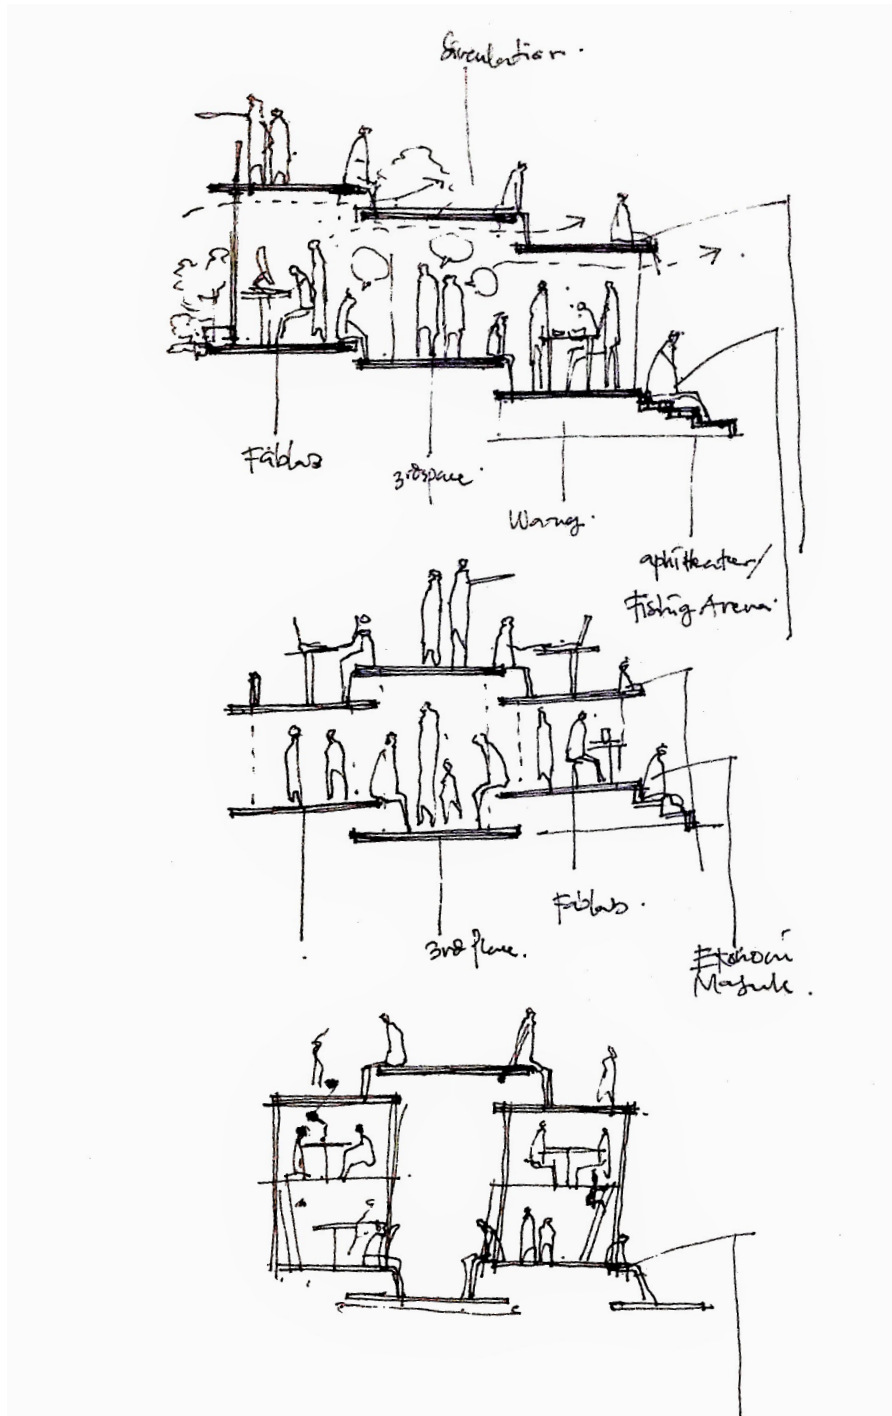 Sirculation.
Fablab
3rd space.
Warung.
aphitheater/
Fishing Arena.
3rd place.
Fablab.
Ekonomi
Masuk.